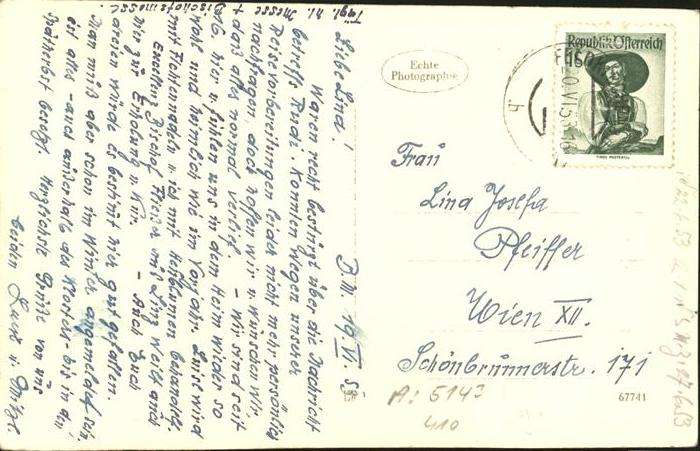 Tägl. hl. Messe +
Bischofsmesse.
B. M. 19. VI. 53
Liebe Lina!
Waren recht bestürzt über die Nachricht
betreffs Rudi. Konnten wegen unserer
Reisevorbereitungen leider nicht mehr persönlich
nachfragen, doch hoffen wir u. wünschen wir,
daß alles normal verlief. – Wir sind seit
hier u. fühlen uns in dem Heim wieder so
wohl und heimlich wie im Vorjahr. Luise wird
mit Fichtennadeln u. ich mit Heublumen behandelt
Exzellenz Bischof Fließer aus Linz weilt auch
hier zur Erholung u. Kur. – Auch Euch
dreien würde es bestimmt hier gut gefallen.
Man muß aber schon im Winter angemeldet sein,
ist alles – auch außerhalb des Klosters – bis in den
Spätherbst besetzt. Herzlichste Grüße von uns
beiden Luise u.
Echte
Photographie
Republik Österreich
20.VI.53
h
Frau
Lina Josefa
Pfeiffer
Wien XII.
Schönbrunnerstr. 171
A: 5143
410
67741